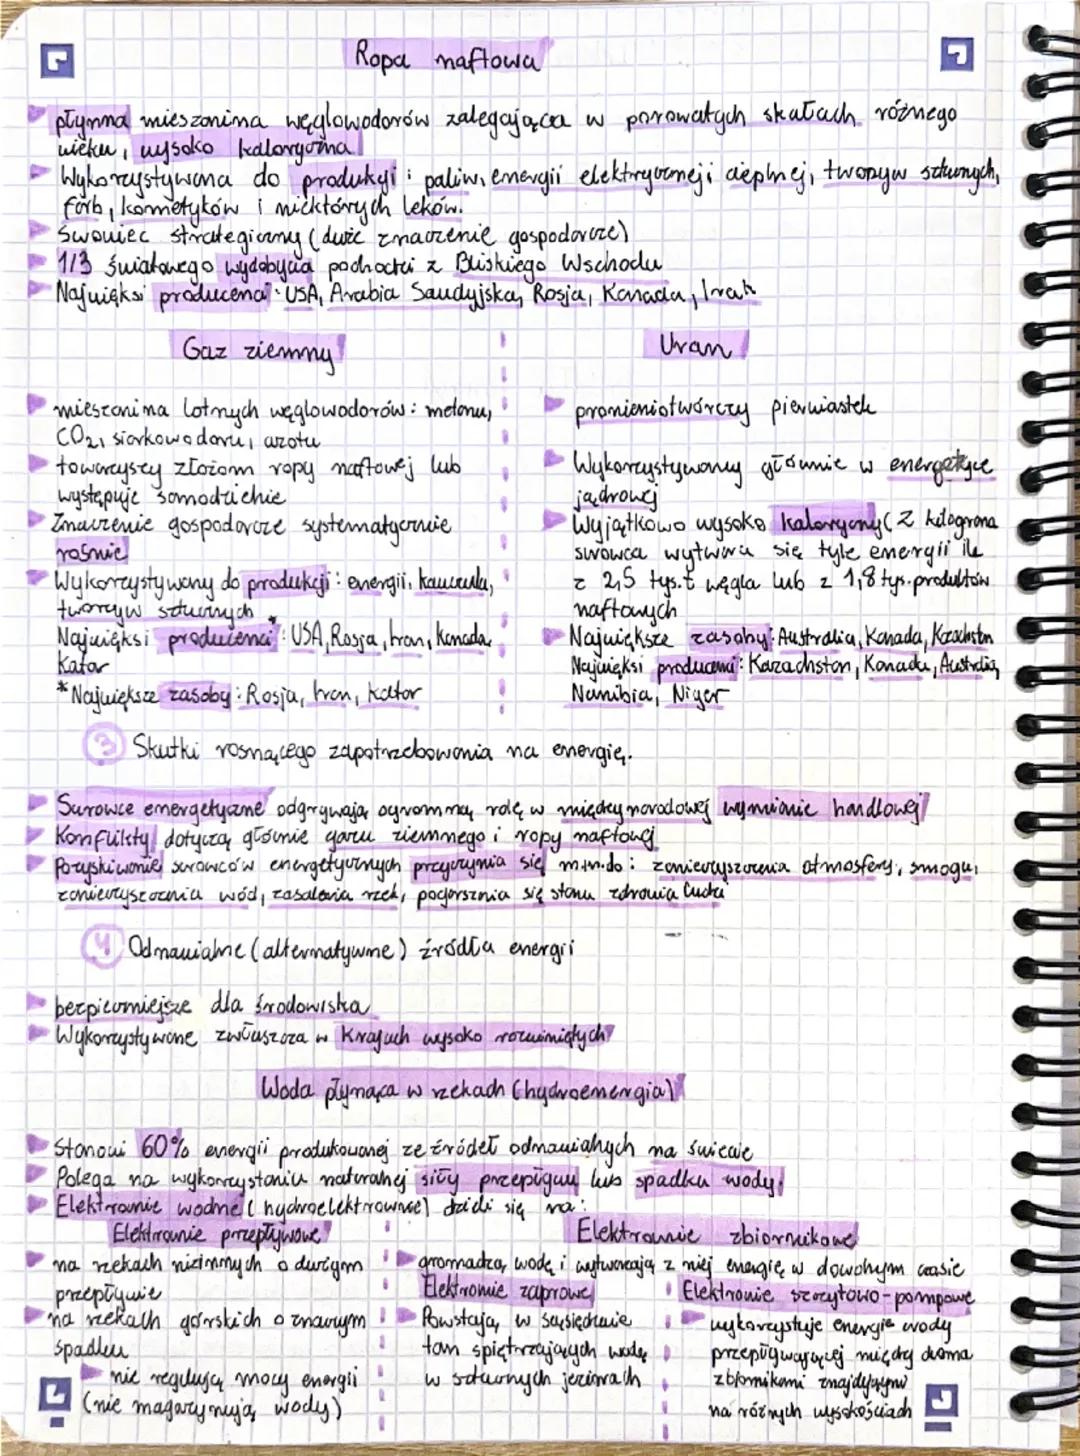 Ropa naftowa
płynna mieszanina węglowodorów zalegająca w porowatych skałach różnego
wieku, wysoko kaloryczna
Wykorzystywana do produkcji: paliw, energii elektrycznej i cieplnej, tworzyw sztucznych,
farb, kosmetyków i niektórych leków.
Surowiec strategiczny (duże znaczenie gospodarcze)
1/3 światowego wydobycia pochodzi z Bliskiego Wschodu
Najwięksi producenci: USA, Arabia Saudyjska, Rosja, Kanada, Irak
Gaz ziemny
mieszanina lotnych węglowodorów: metanu,
CO2, siarkowodoru, azotu
towarzyszy złożom ropy naftowej lub
występuje samodzielnie
Znaczenie gospodarcze systematycznie
rośnie
Wykorzystywany do produkcji: energii, kauczuku,
tworzyw sztucznych
Najwięksi producenci*: USA, Rosja, Iran, Kanada,
Katar
*Największe zasoby: Rosja, Iran, Katar
Uran
promieniotwórczy pierwiastek
Wykorzystywany głównie w energetyce
jądrowej
Wyjątkowo wysoko kaloryczny (z kilograma
surowca wytwarza się tyle energii ile
z 2,5 tys.t węgla lub z 1,8 tys. produktów
naftowych
Największe zasoby: Australia, Kanada, Kazachstan
Najwięksi producenci: Kazachstan, Kanada, Australia,
Namibia, Niger
3 Skutki rosnącego zapotrzebowania na energię.
Surowce energetyczne odgrywają ogromną rolę w międzynarodowej wymianie handlowej
Konflikty dotyczą głównie gazu ziemnego i ropy naftowej
Pozyskiwanie surowców energetycznych przyczynia się m.in.do: zanieczyszczenia atmosfery, smogu,
zanieczyszczenia wód, zasolenia rzek, pogorszenia się stanu zdrowia ludzi
4 Odnawialne (alternatywne) źródła energii
bezpieczniejsze dla środowiska
Wykorzystywane zwłaszcza w krajach wysoko rozwiniętych
Woda płynąca w rzekach (hydroenergia)
Stanowi 60% energii produkowanej ze źródeł odnawialnych na świecie
Polega na wykorzystaniu naturalnej siły przepływu lub spadku wody
Elektrownie wodne (hydroelektrownie) dzieli się na:
Elektrownie przepływowe
na rzekach nizinnych o dużym
przepływie
na rzekach górskich o znacznym
spadku
nie regulują mocy energii
(nie magazynują wody)
Elektrownie zbiornikowe
gromadzą wodę i wytwarzają z niej energię w dowolnym czasie
Elektrownie zaporowe
Powstają w sąsiedztwie
tam spiętrzających wodę
w sztucznych jeziorach
Elektrownie szczytowo-pompowe
wykorzystuje energię wody
przepływającej między dwoma
zbiornikami znajdującymi
na różnych wysokościach